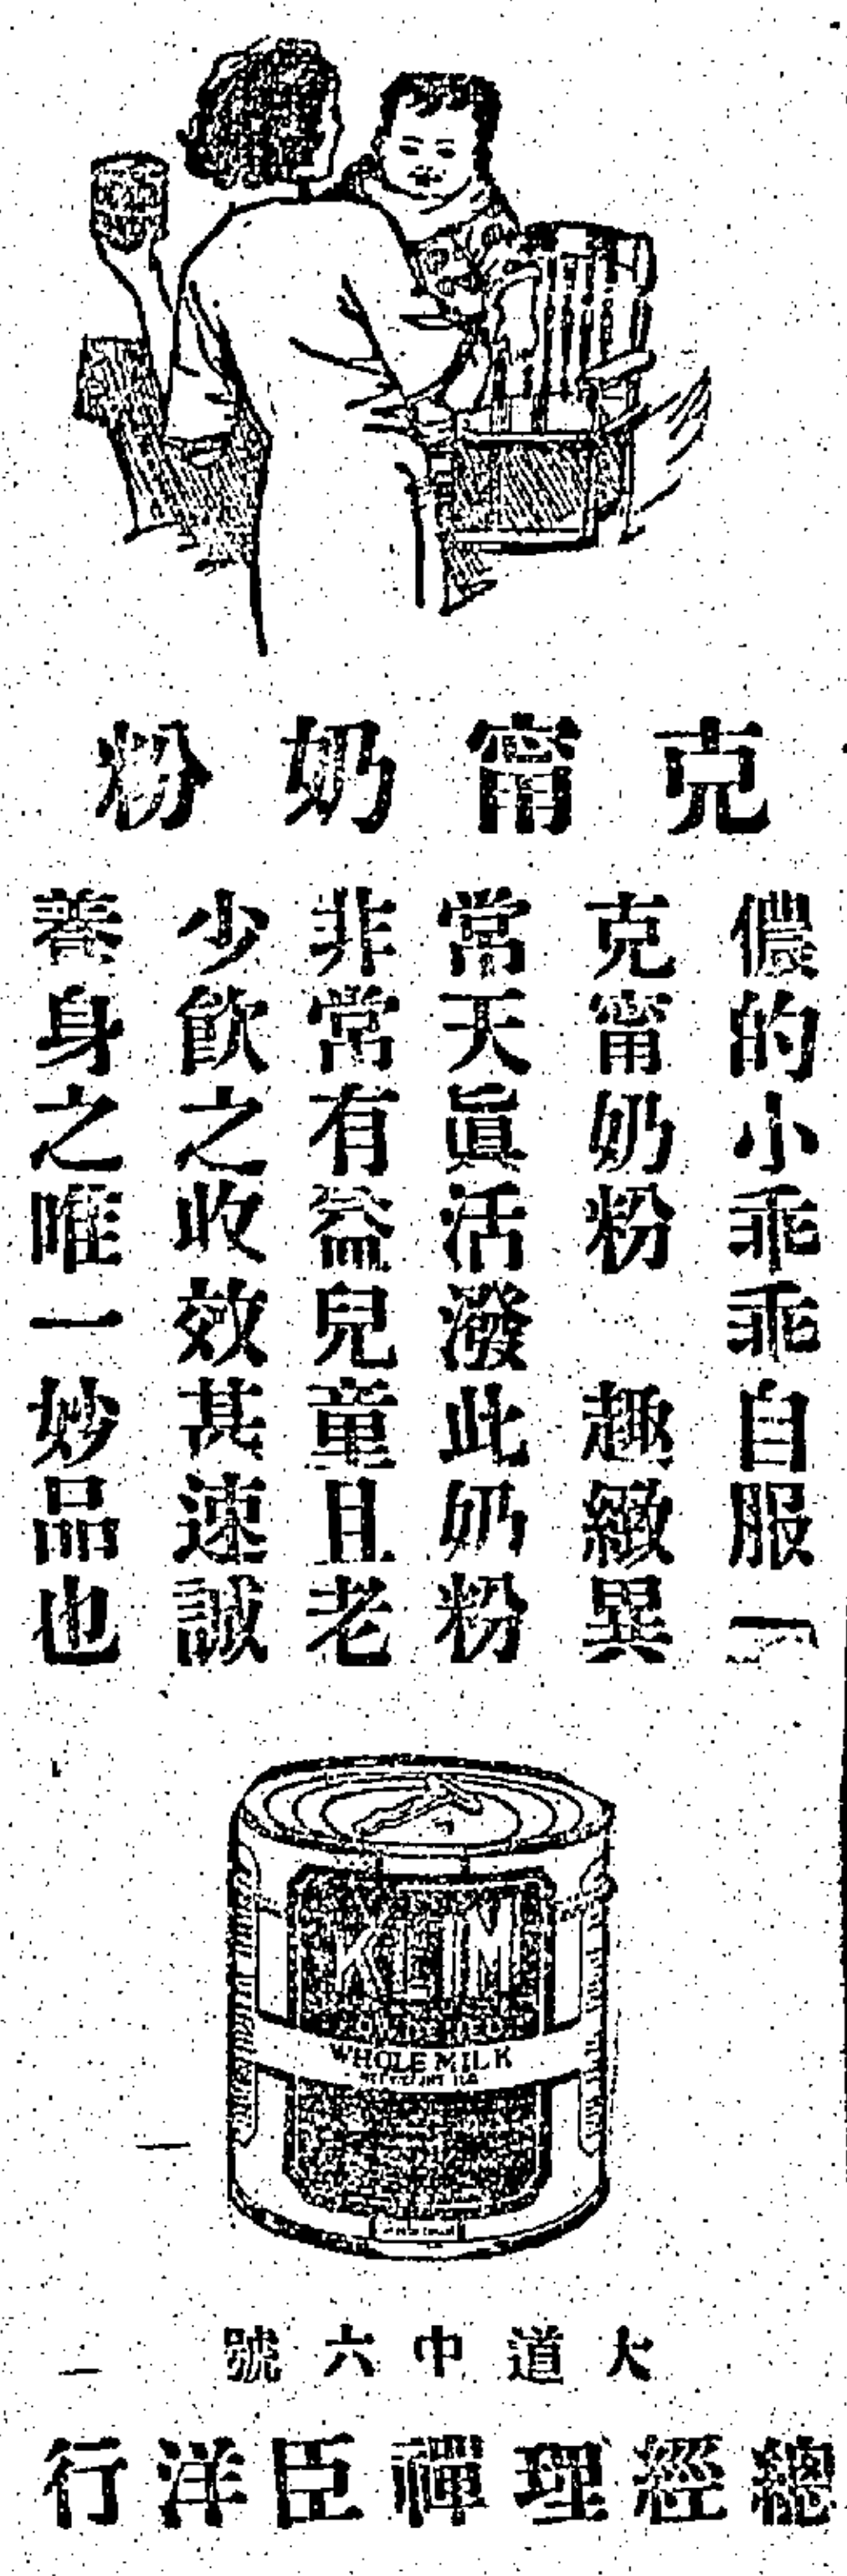 克甯奶粉
儂的小乖乖自服
克甯奶粉　趣緻異
常天眞活潑此奶粉
非常有益兒童且老
少飮之收效甚速誠
養身之唯一妙品也
KLIM
POWDERED
WHOLE MILK
大道中六號
總經理禪臣洋行